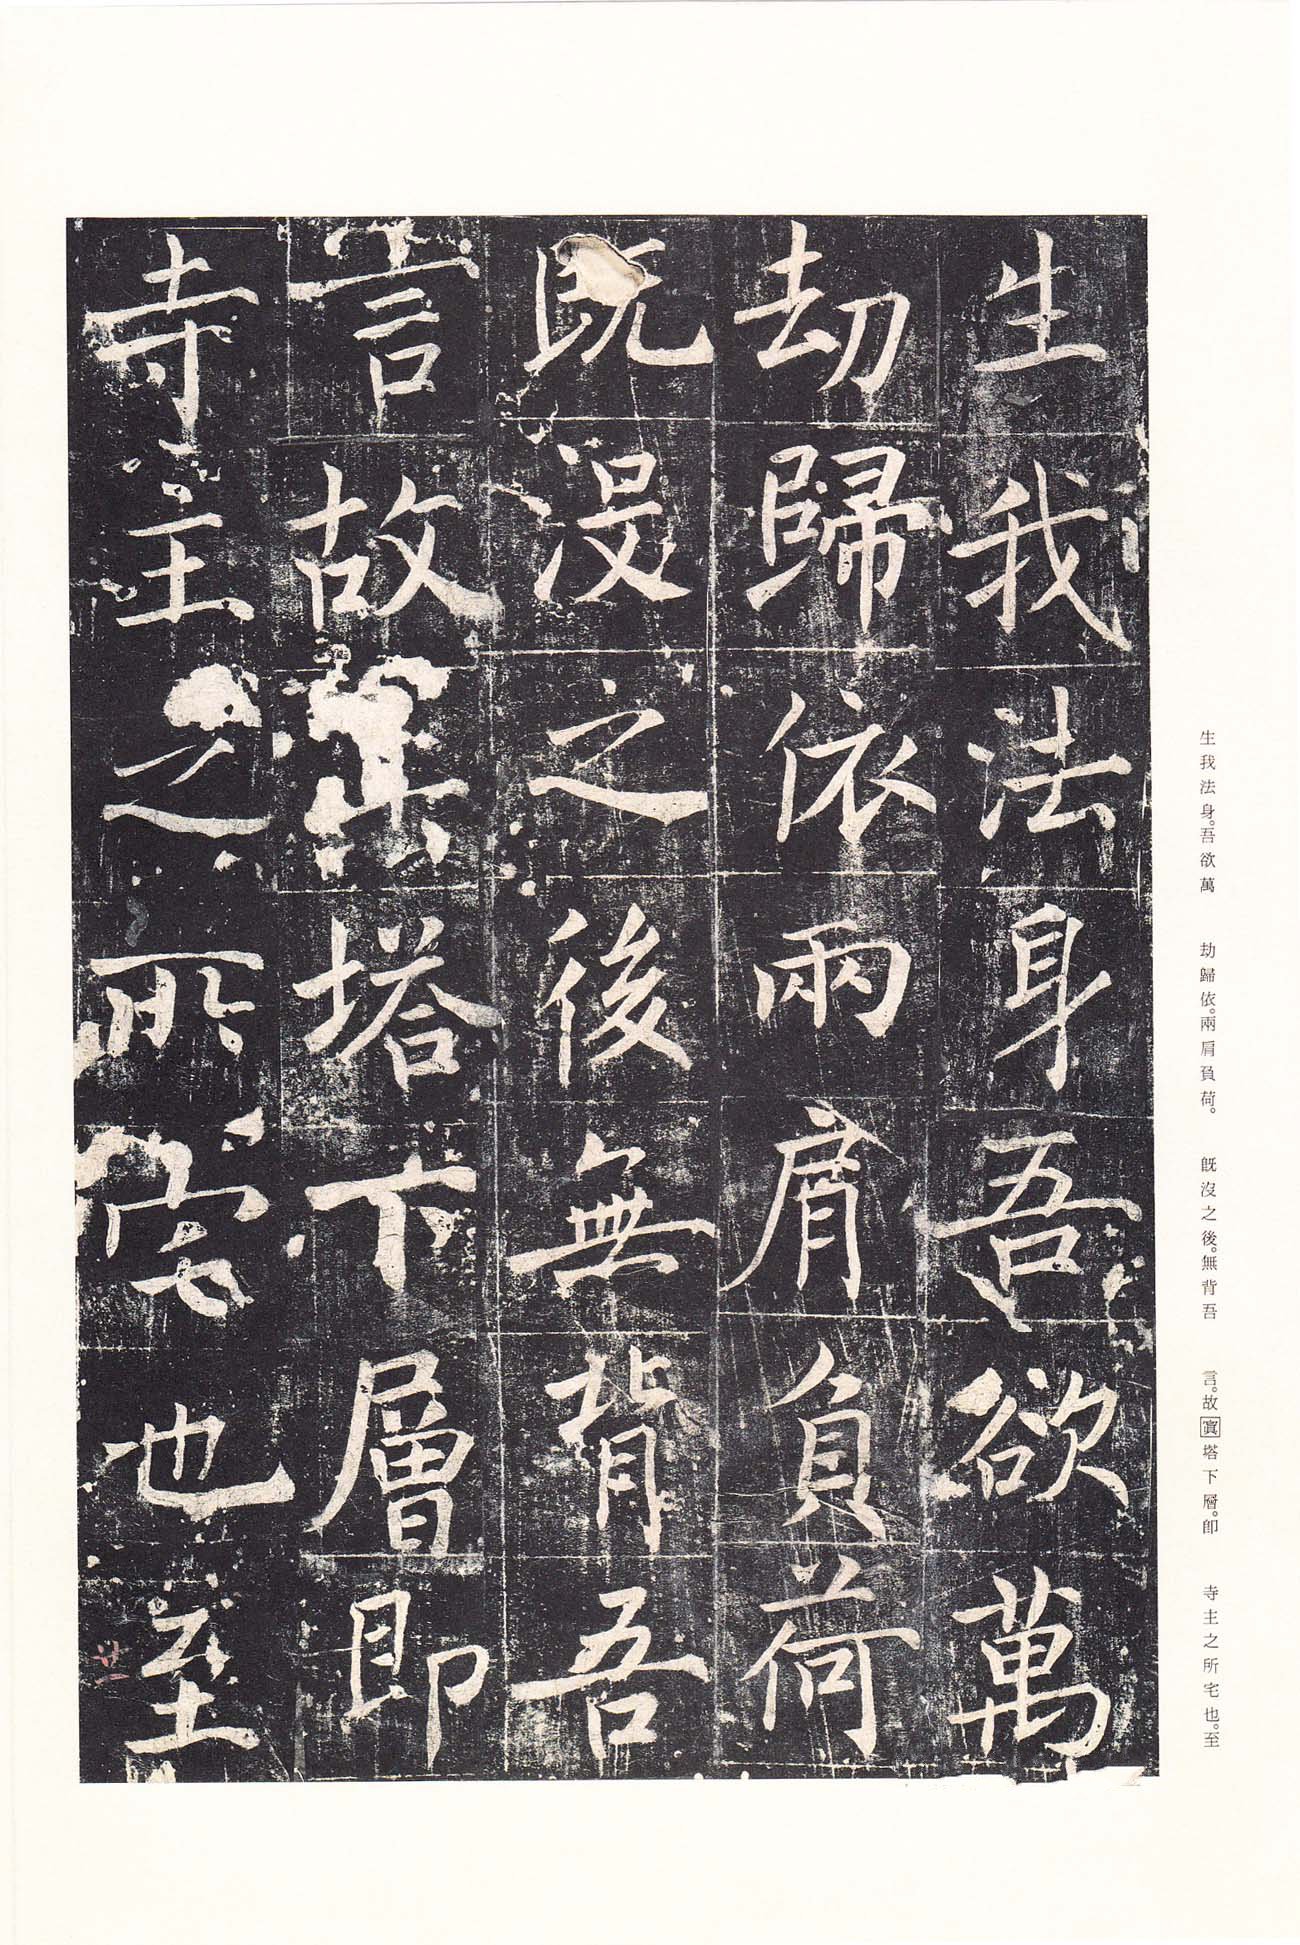 生我法身吾欲萬
劫歸依兩肩負荷
既沒之後無背吾
言故寘塔下層即
寺主之所宅也至
生我法身。吾欲萬　劫歸依。兩肩負荷。　既沒之後。無背吾　言。故寘塔下層。卽　寺主之所宅也。至